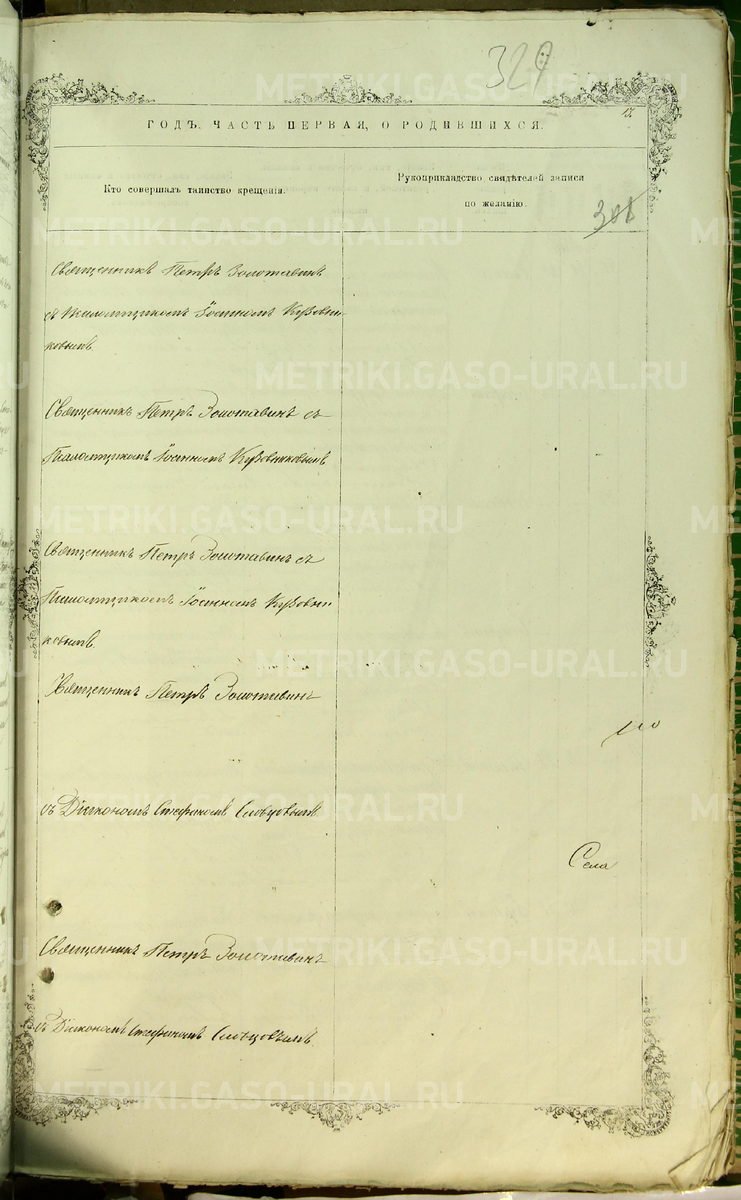 329
METRIKI.GASO-URAL.RU
ГОДЪ, ЧАСТЬ ПЕРВАЯ, О РОДИВШИХСЯ.
Кто совершалъ таинство крещенія.
Рукоприкладство свидѣтелей записи
по желанію.
Священникъ Петръ Золотавинъ
съ Псаломщикомъ Іоанномъ Кузовни-
ковымъ.
Священникъ Петръ Золотавинъ съ
Псаломщикомъ Іоанномъ Кузовниковымъ
Священникъ Петръ Золотавинъ съ
Псаломщикомъ Іоанномъ Кузовни-
ковымъ.
Священникъ Петръ Золотавинъ
съ Діакономъ Стефаномъ Словцовымъ
Села
Священникъ Петръ Золотавинъ
съ Діакономъ Стефаномъ Словцовымъ